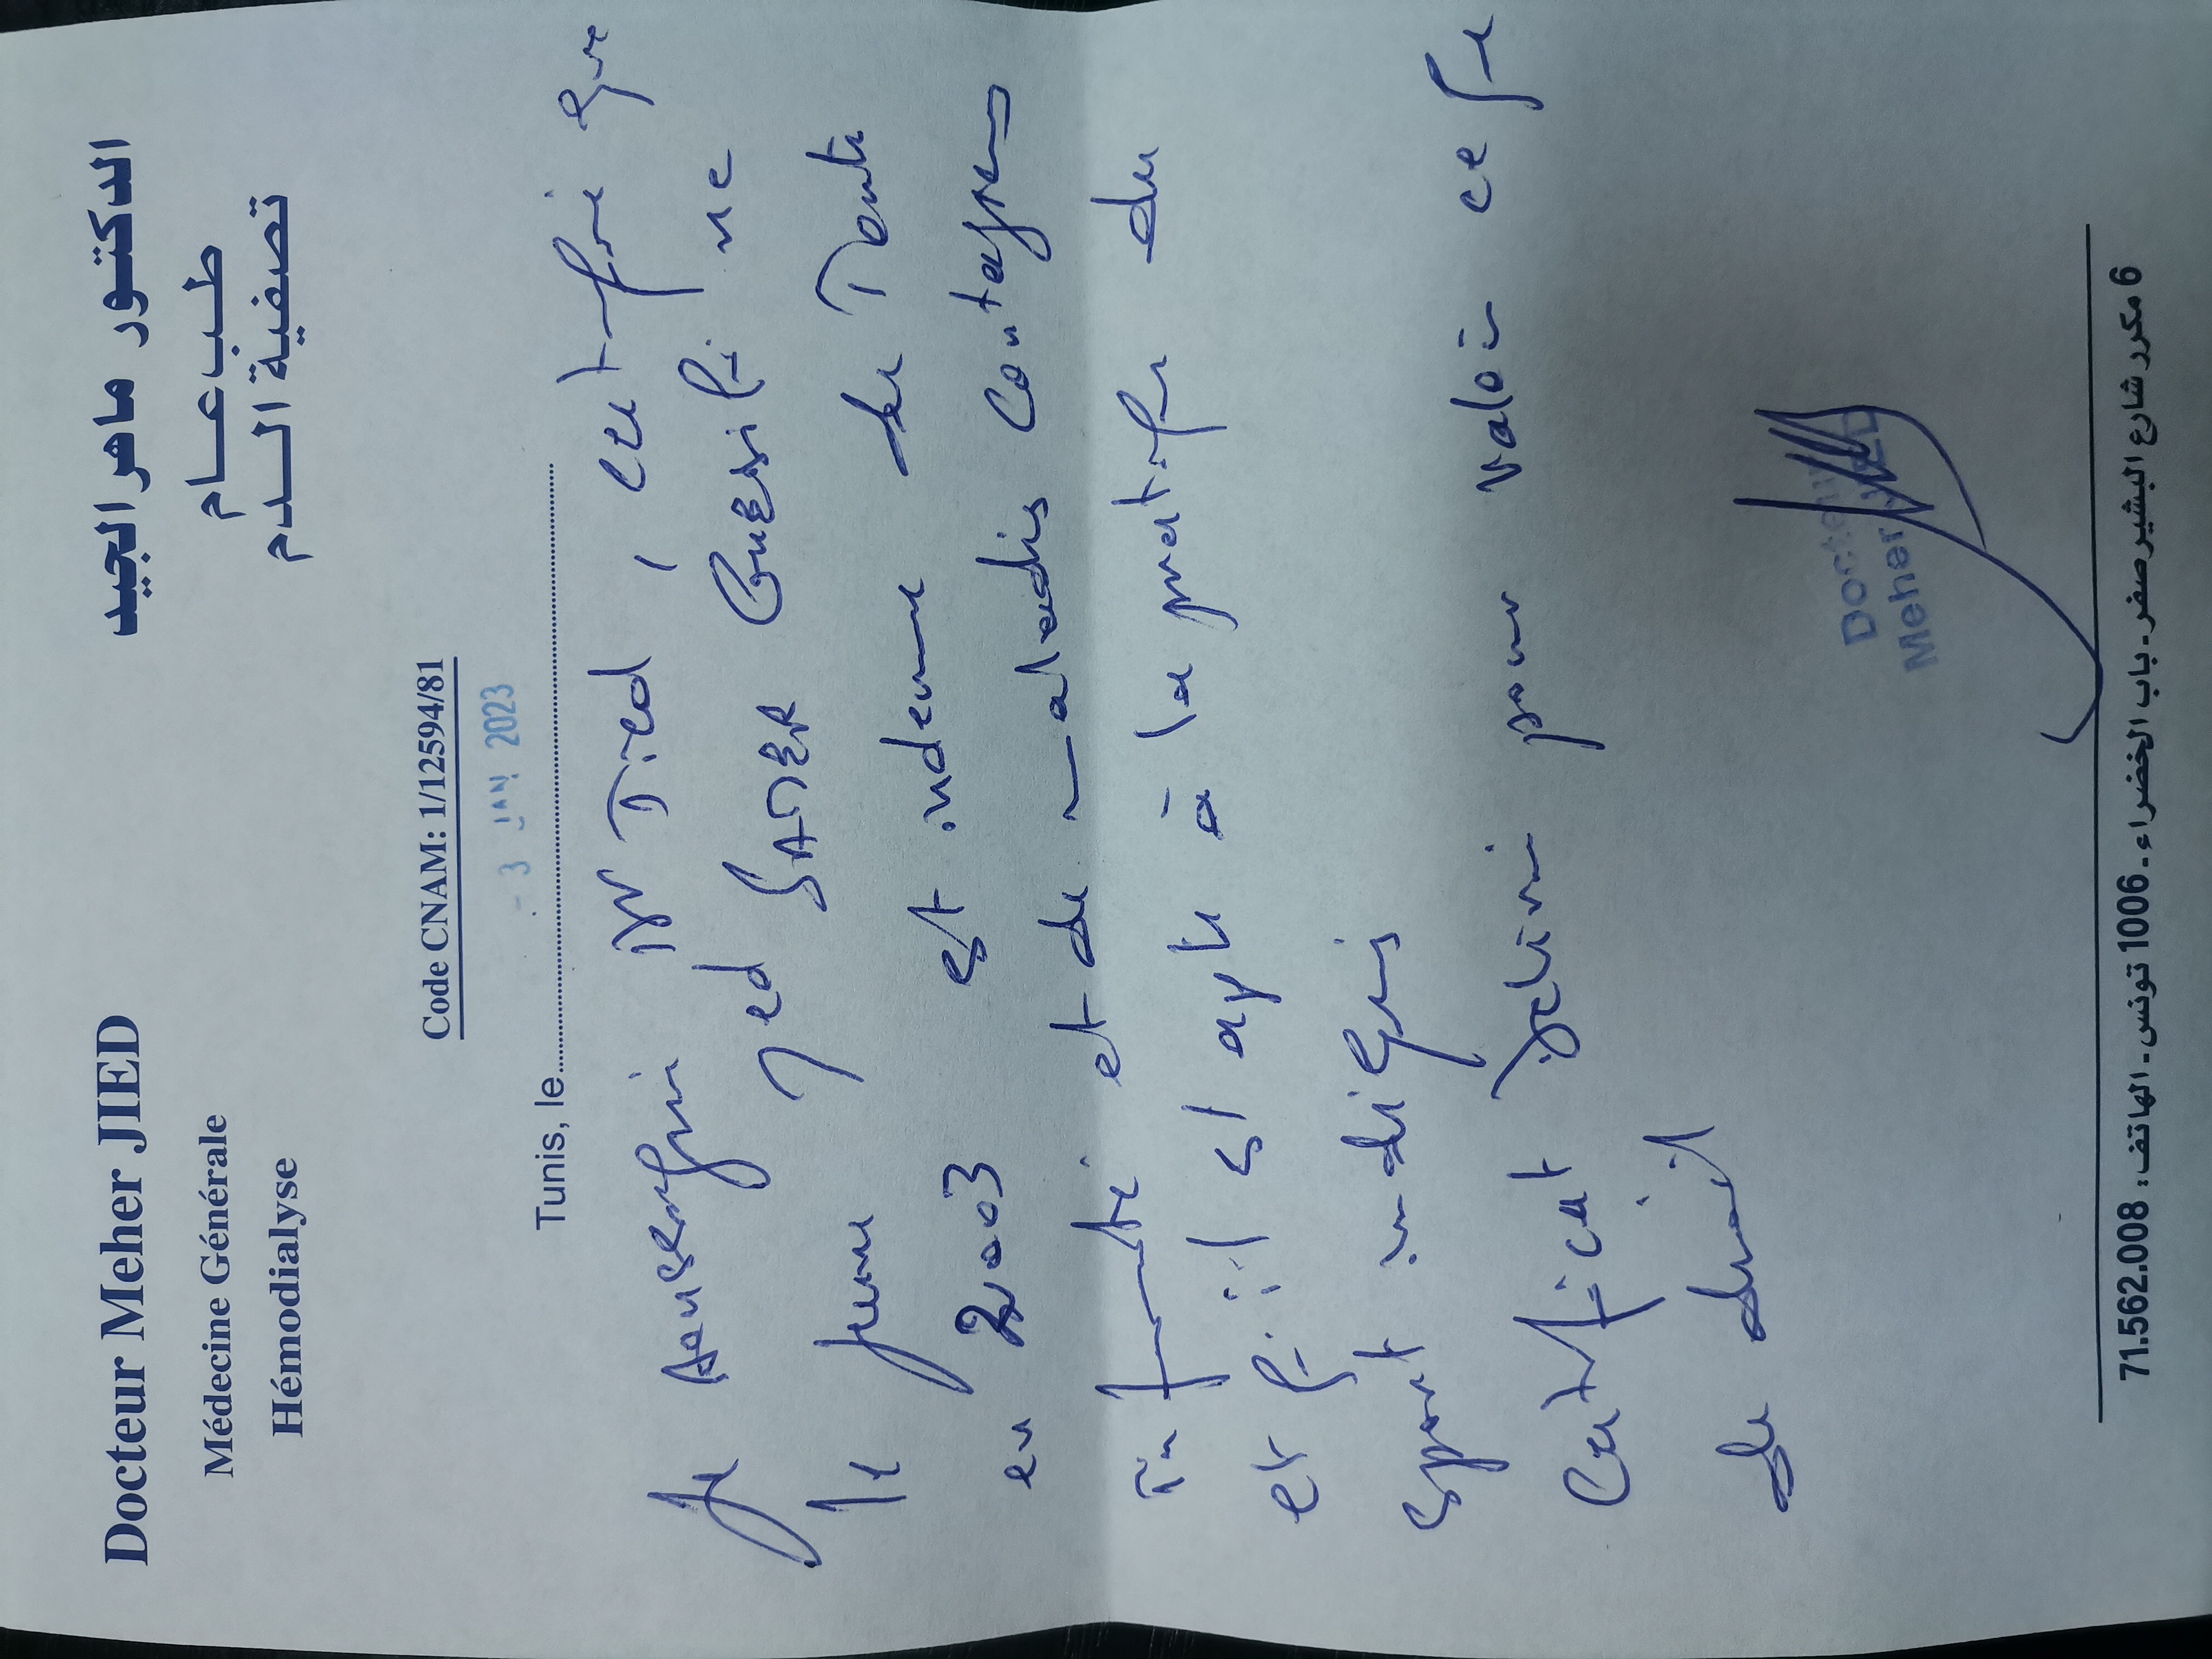 Docteur Meher JIED
الدكتور ماهر الجيد
Médecine Générale
طب عام
Hémodialyse
تصفية الدم
Code CNAM: 1/12594/81
- 3 JAN 2023
Tunis, le
Je soussigné Dr Jied, certifie que
le jeune Jed SADER né
en 2003 est indemne de toute
infirmité et de maladies contagieuses
et qu'il est apte à la pratique du
sport
Certificat délivré pour valoir ce que
de droit
Docteur
Meher JIED
6 مكرر شارع البشير صفر - باب الخضراء - 1006 تونس - الهاتف : 71.562.008